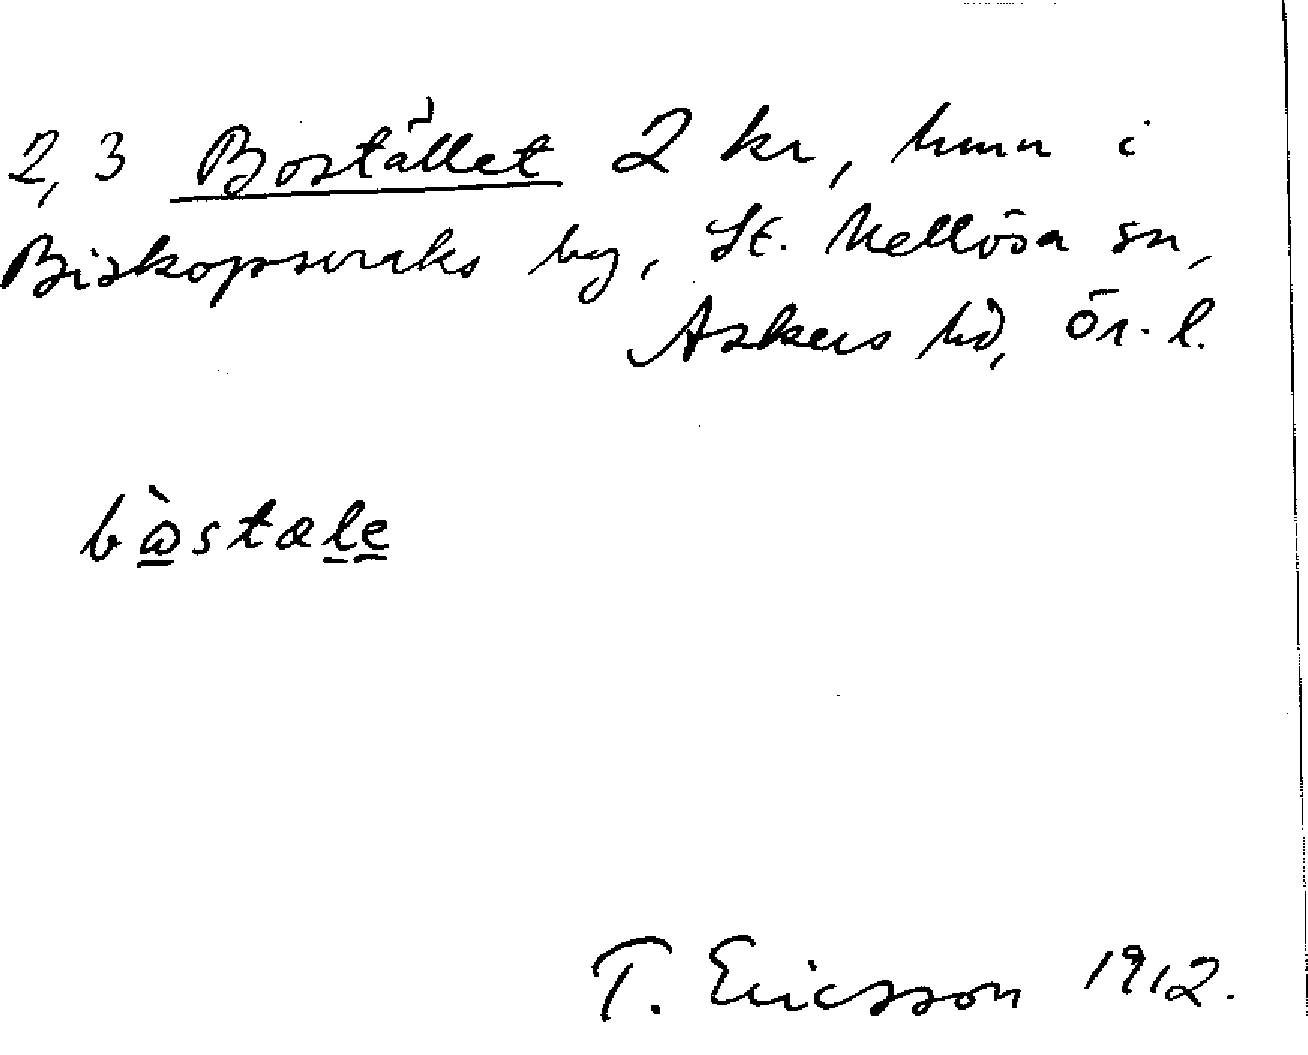 2,3 Bostället 2 kr, hmn i
Biskopsvraks by, St. Mellösa sn,
Askers hd, Ör. l.
bɷ̀stæle
T. Ericsson 1912.